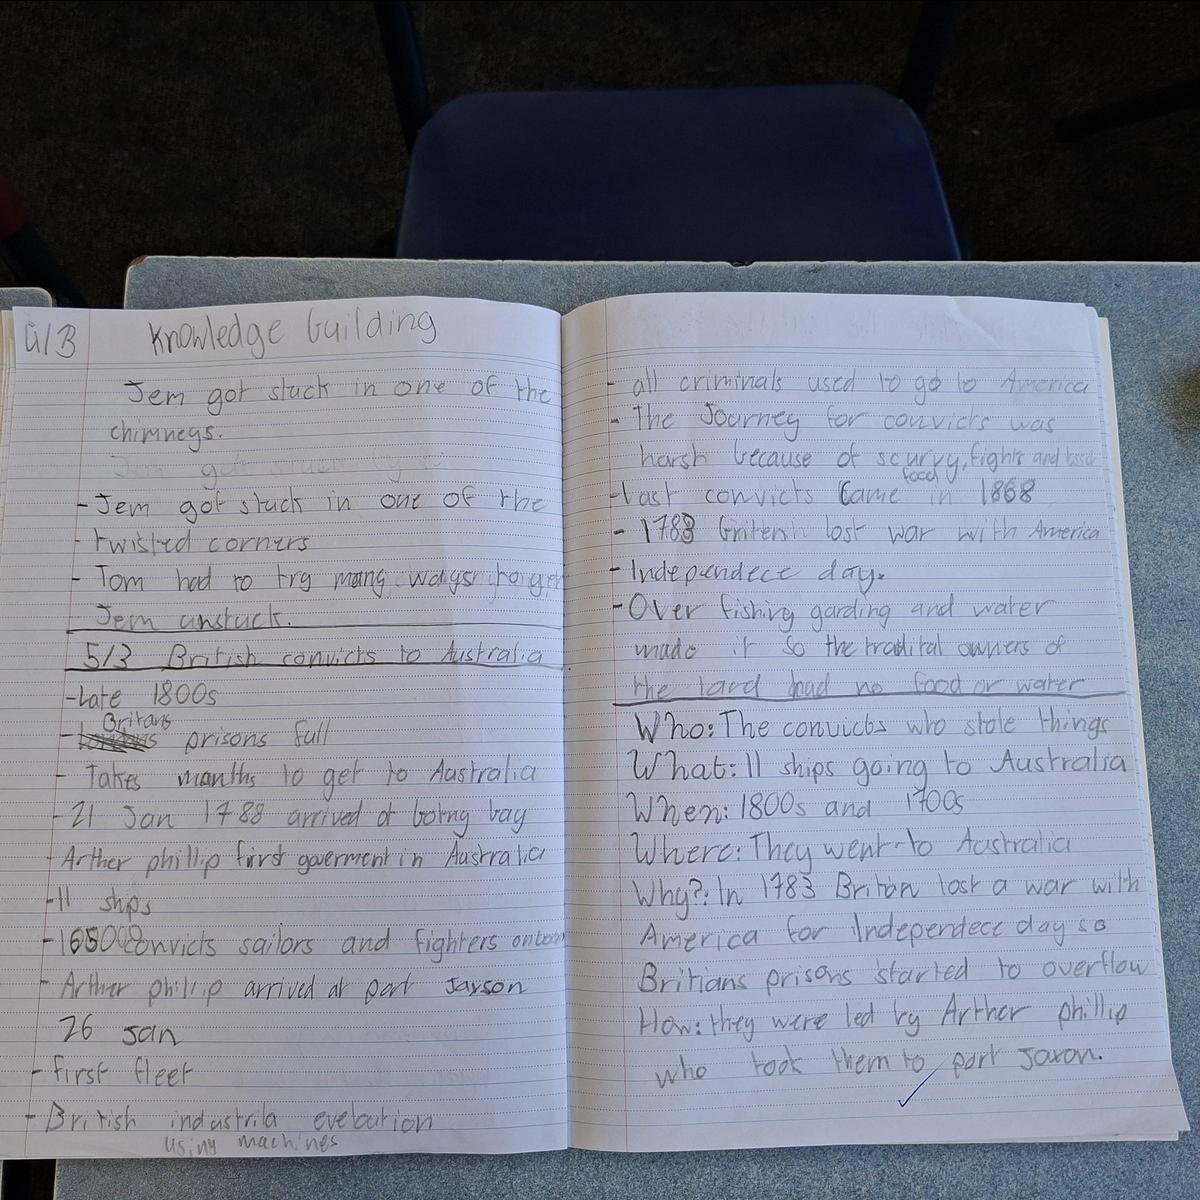 4/3 Knowledge building
Jem got stuck in one of the
chimneys.
Jem got stuck
- Jem got stuck in one of the
twisted corners
- Tom had to try many ways to get
Jem unstuck.
5/3 British convicts to Australia
- Late 1800s
Britans
- prisons full
- Takes months to get to Australia
- 21 Jan 1788 arrived at botny bay
- Arther phillip first goverment in Australia
- 11 ships
- convicts sailors and fighters onboard
- Arther phillip arrived at port Jaxson
26 Jan
- first fleet
- British industrila evelbution
using machines
- all criminals used to go to America
- The Journey for convicts was
harsh because of scurvy, fights and bad
food
- Last convicts came in 1868
- 1783 Briten lost war with America
- Independece day.
- Over fishing garding and water
made it so the tradital owners of
the land had no food or water
Who: The convicts who stole things
What: 11 ships going to Australia
When: 1800s and 1700s
Where: They went to Australia
Why?: In 1783 Briton lost a war with
America for Independece day so
Britians prisons started to overflow
How: they were led by Arther phillip
who took them to port Jaxon.